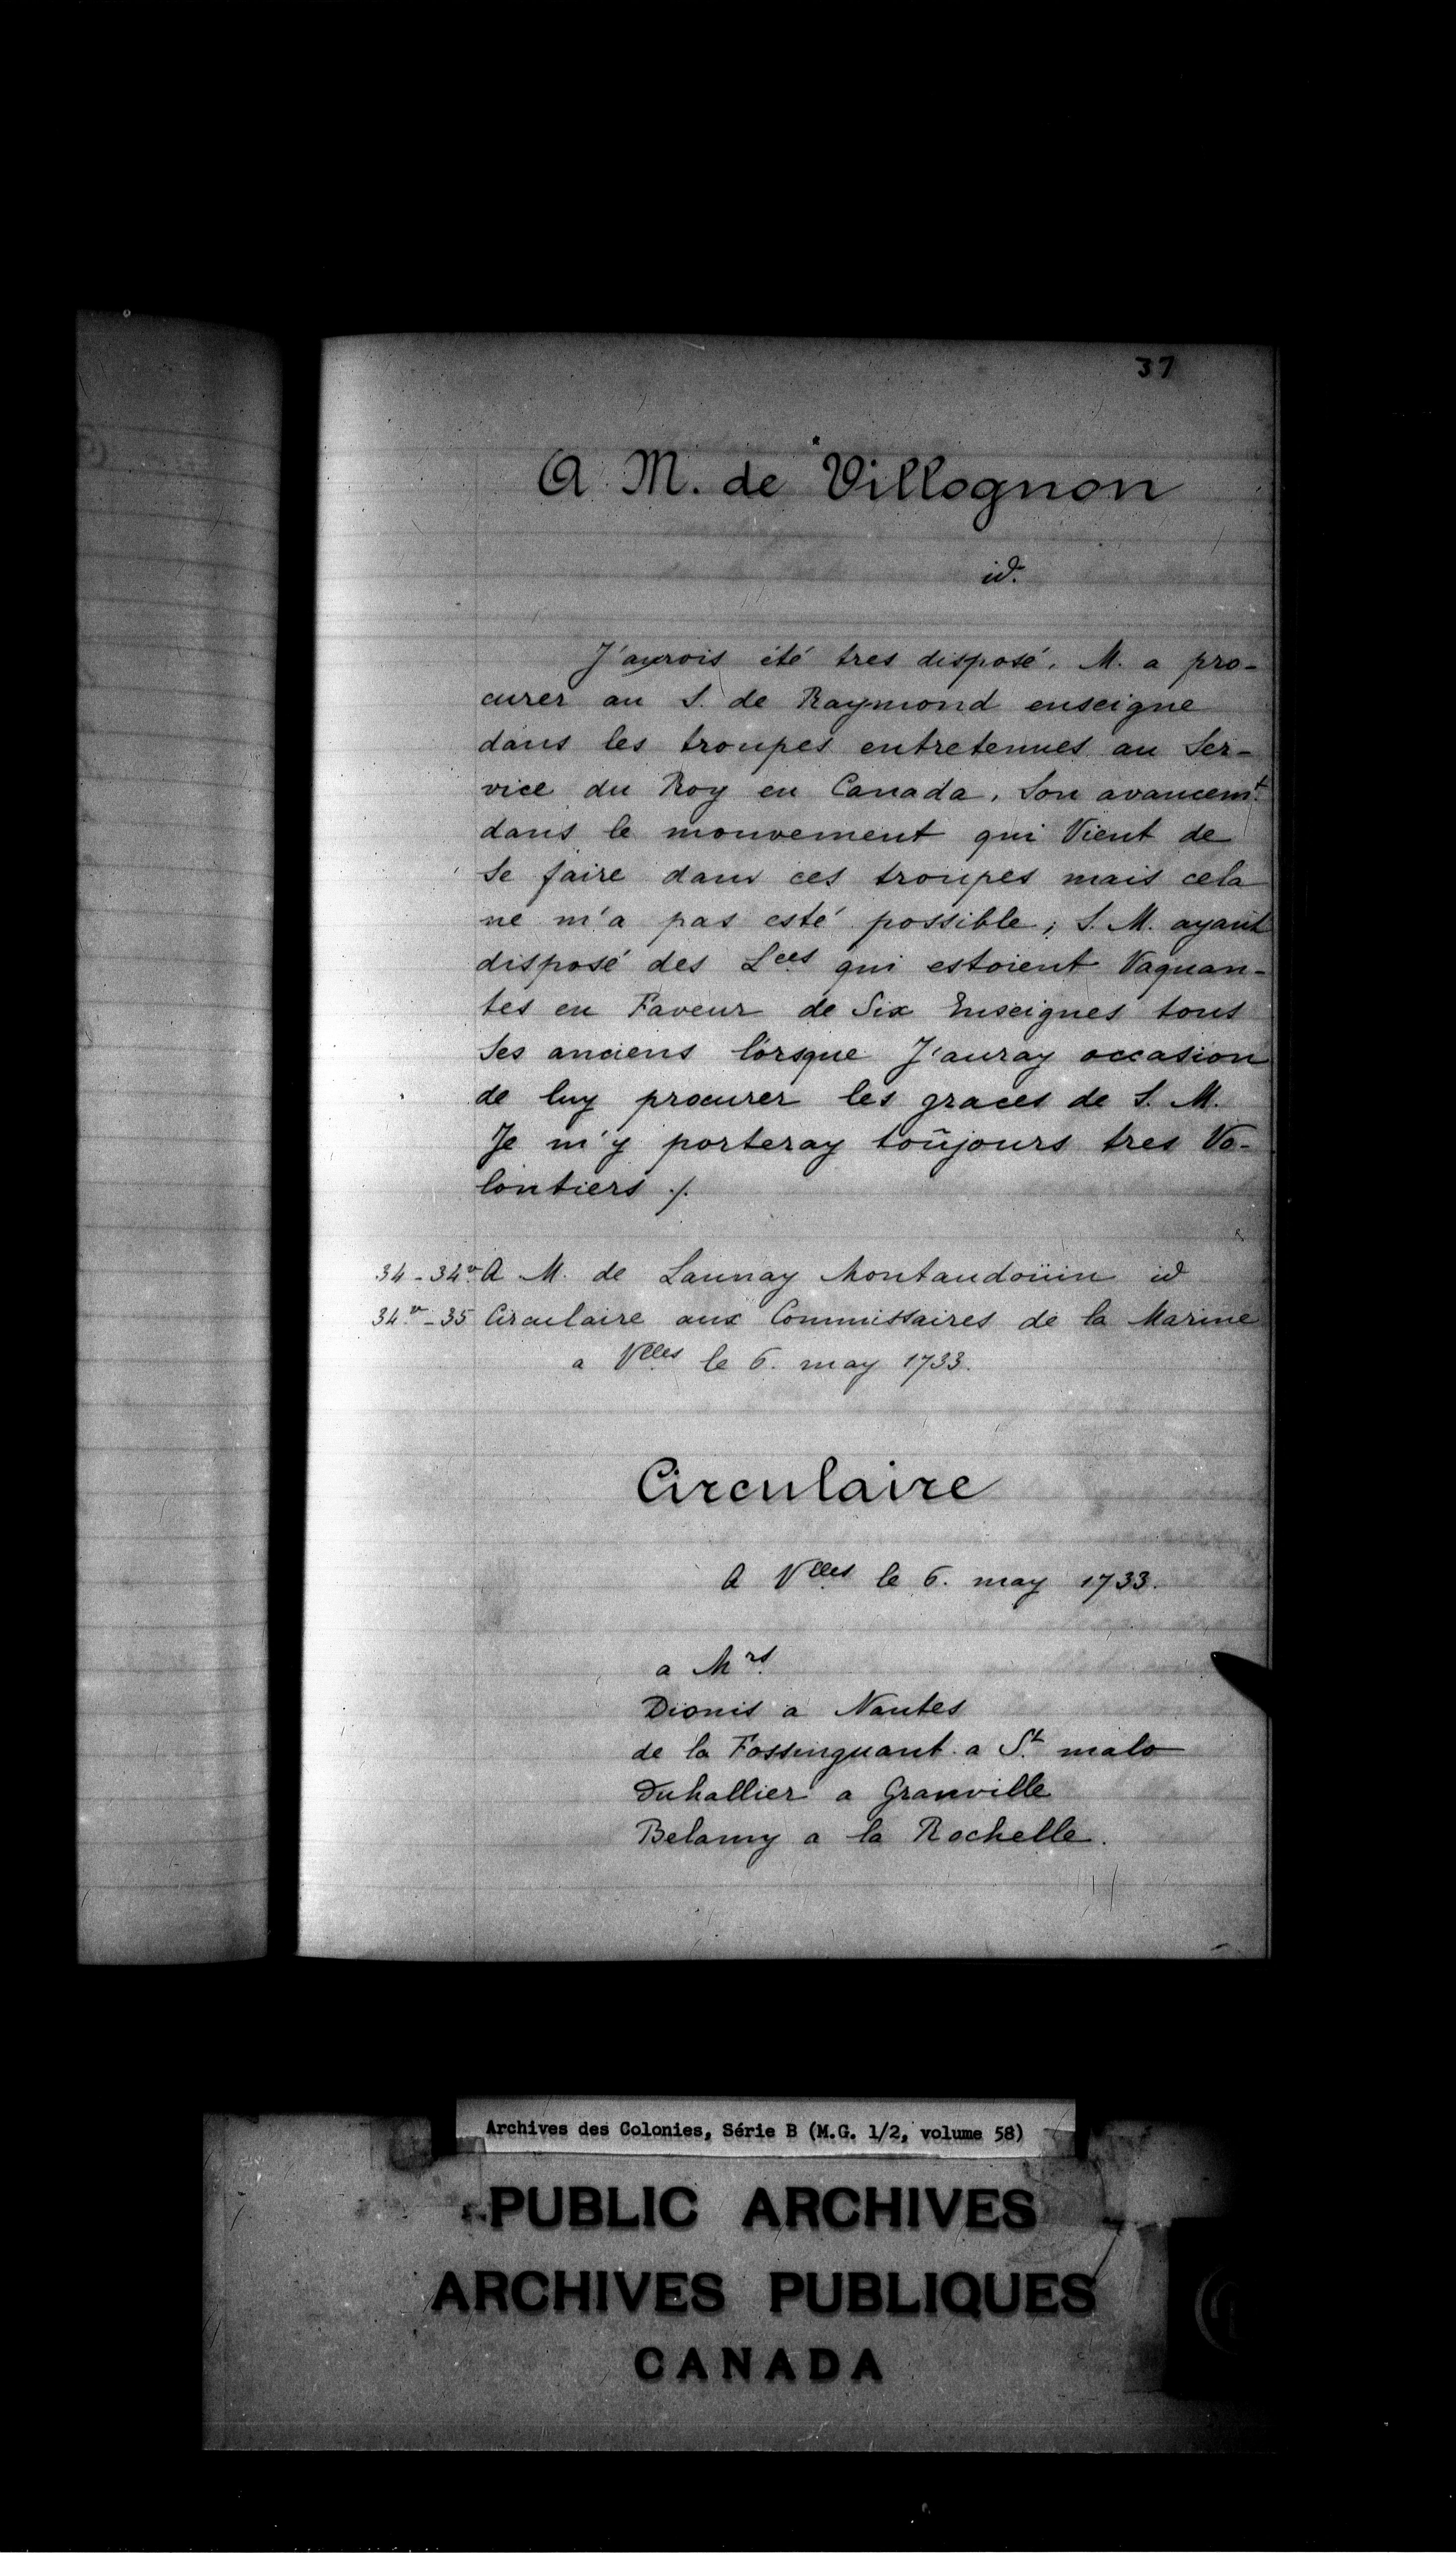 37
A M. de Villognon
id.
J'aurois été tres disposé, M. a pro-
curer au S. de Raymond enseigne
dans les troupes entretenues au Ser-
vice du Roy en Canada, Son avancemt.
dans le mouvement qui Vient de
Se faire dans ces troupes mais cela
ne m'a pas esté possible; S. M. ayant
disposé des Lces qui estoient Vaquan-
tes en Faveur de Six Enseignes tous
Ses anciens lorsque J'auray occasion
de luy procurer les graces de S. M.
Je m'y porteray toûjours tres Vo-
lontiers ./.
34-34v. A M. de Launay Montaudoüin id
34.v-35 Circulaire aux Commissaires de la Marine
a Vlles le 6. may 1733.
Circulaire
A Vlles le 6. may 1733.
a Mrs.
Dionis a Nantes
de la a St. malo
Duhallier a Granville
Belamy a la Rochelle.
Archives des Colonies, Série B (M.G. 1/2, volume 58)
PUBLIC ARCHIVES
ARCHIVES PUBLIQUES
CANADA